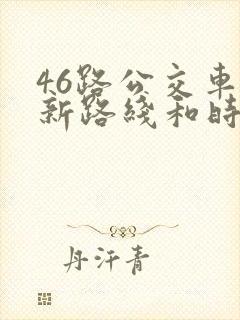 46路公交車
新路綫和時
丹汗青